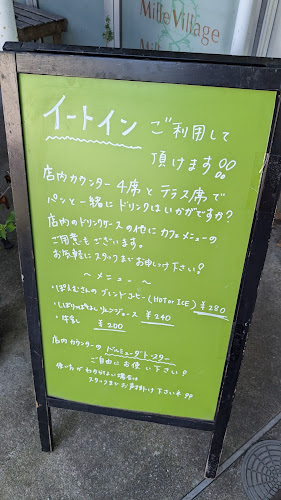 Mille Village
イートイン ご利用して
頂けます!!
店内カウンター4席とテラス席で
パンと一緒にドリンクはいかがですか?
店内のドリンクケースの他にカフェメニューの
ご用意もございます。
お気軽にスタッフまでお申しつけ下さい!
~メニュー~
・ぽえむさんのブレンドコーヒー(HOT or ICE) ¥280
・しぼりたてりんごジュース ¥240
・牛乳 ¥200
店内カウンターの
トースター
ご自由にお使い下さい!
使い方がわからない場合は
スタッフまでお声掛け下さいネ!!